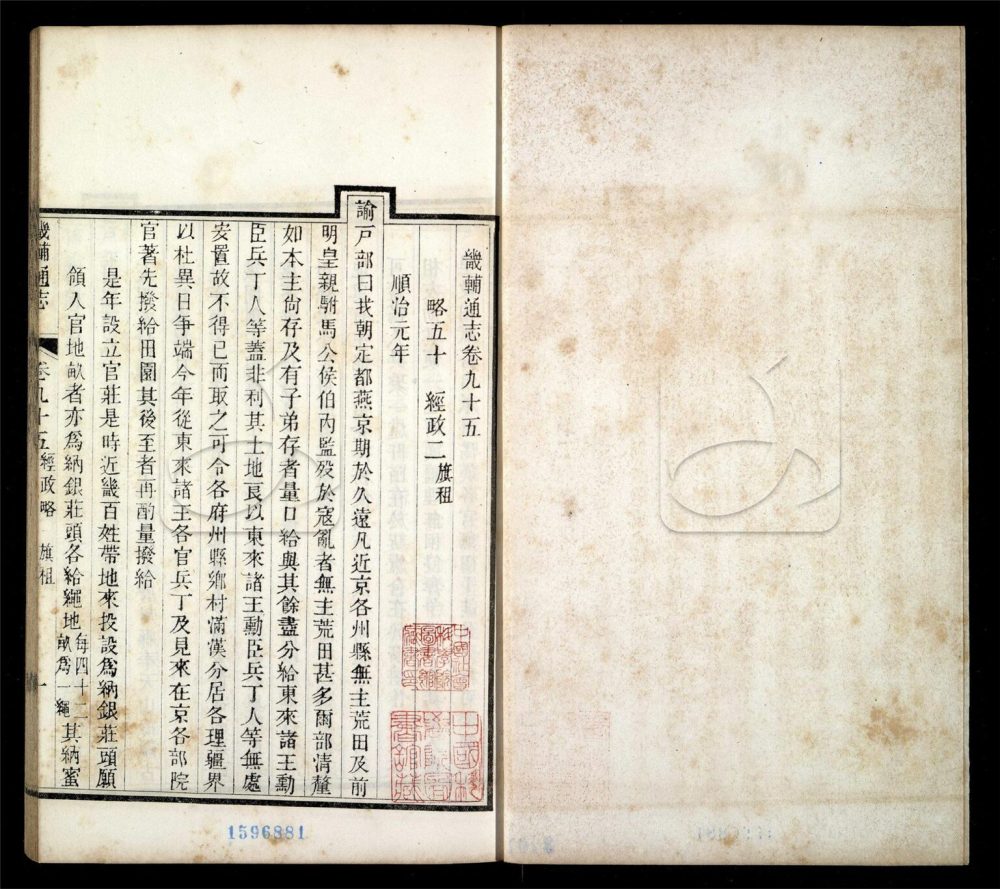 畿輔通志卷九十五
略五十　經政二 旗租
順治元年
諭戸部曰我朝定都燕京期於久遠凡近京各州縣無主荒田及前
明皇親駙馬公侯伯內監歿於寇亂者無主荒田甚多爾部清釐
如本主尙存及有子弟存者量口給與其餘盡分給東來諸王勳
臣兵丁人等蓋非利其土地良以東來諸王勳臣兵丁人等無處
安置故不得已而取之可令各府州縣鄉村滿漢分居各理疆界
以杜異日爭端今年從東來諸王各官兵丁及見來在京各部院
官著先撥給田園其後至者再酌量撥給
是年設立官莊是時近畿百姓帶地來投設爲納銀莊頭願
領入官地畝者亦爲納銀莊頭各給繩地 每四十二畝爲一繩 其納蜜
畿輔通志 卷九十五 經政略 旗租 一
1596881